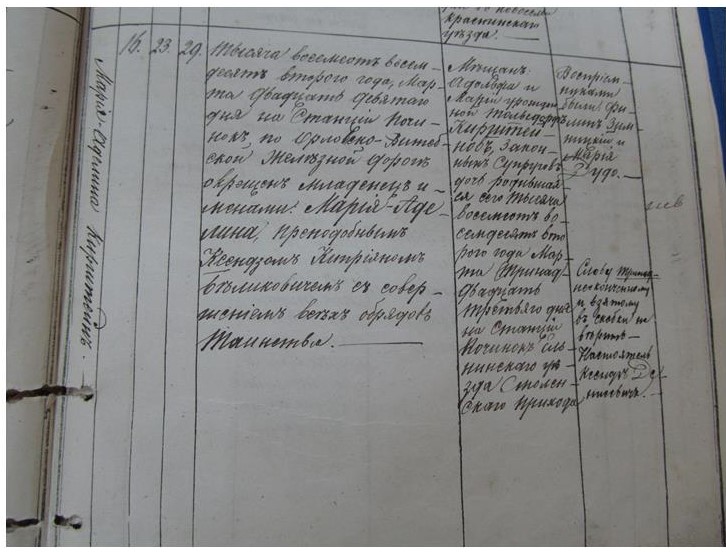 краснинскаго
уѣзда.
Марія-Аделина Кирштейнъ.
16. 23. 29.
Тысяча восемьсотъ восемь-
десятъ второго года, Мар-
та двадцать девятаго
дня на Станціи Почи-
нокъ, по Орловско-Витеб-
ской Желѣзной дорогѣ
окрещенъ младенецъ и-
менами: Марія-Аде-
лина, преподобнымъ
Ксендзомъ Кипріяномъ
Великовичемъ съ совер-
шеніемъ всѣхъ обрядовъ
Таинства.
Мѣщанъ
Адольфа и
Маріи урожден-
ной
Кирштей-
новъ, закон-
ныхъ Супруговъ
дочь родившая-
ся сего Тысяча
восемьсотъ во-
семдесятъ вто-
рого года Мар-
та Тринад-
двадцать
третьяго дня
на Станціи
Починокъ Ель-
нинскаго уѣ-
зда Смолен-
скаго прихода
Воспріем-
никами
были:
и
Марія
Дудо.
Слову тринад-
неоконченному
и взятому
въ скобки не
вѣрить.
Настоятель
Ксендзъ Де-
нисевичъ.